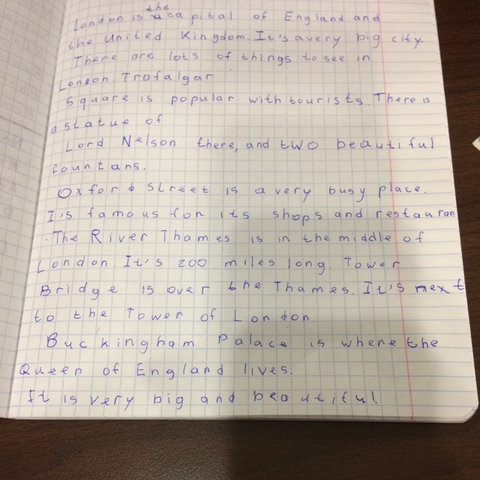 London is the capital of England and
the United Kingdom. It's a very big city.
There are lots of things to see in
London Trafalgar
Square is popular with tourists. There is
a statue of
Lord Nelson there, and two beautiful
fountans.
Oxford street is a very busy place.
I's famous for its shops and restauran
The River Thames is in the middle of
London. It's 200 miles long Tower
Bridge is over the Thames. It's next
to the Tower of London.
Buckingham Palace is where the
Queen of England lives.
It is very big and beautiful.